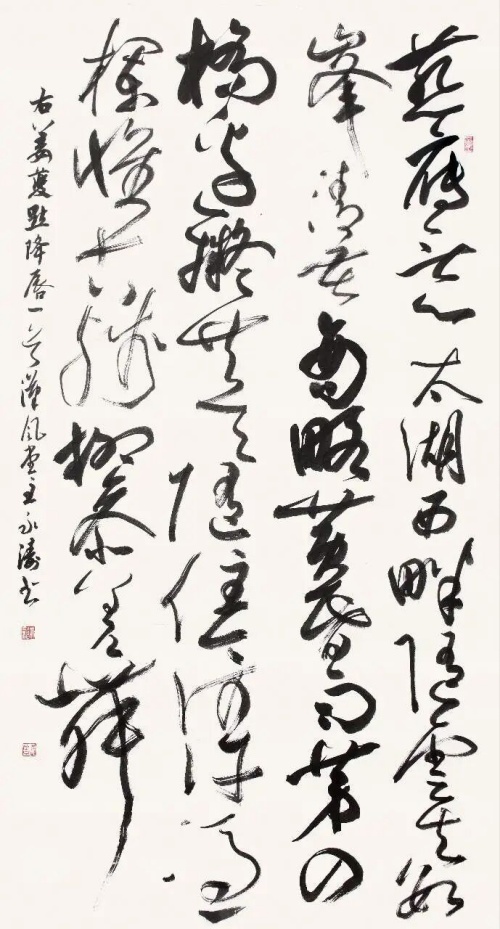 燕雁無心太湖西畔隨雲去數
峯清苦商略黃昏雨第四
橋邊擬共天隨住今何許憑
欄懷古殘柳參差舞
右姜夔點降唇一首漢風堂主永濤书